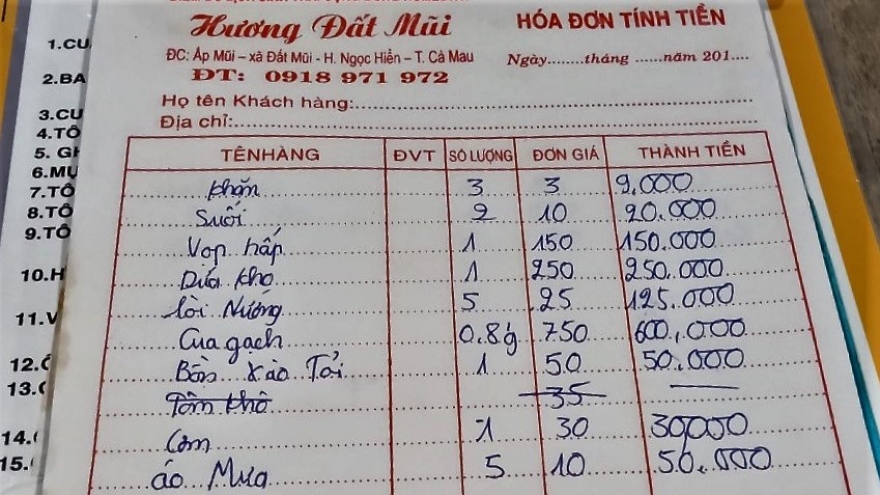 Hương Đất Mũi
HÓA ĐƠN TÍNH TIỀN
ĐC: Ấp Mũi – xã Đất Mũi - H. Ngọc Hiển – T. Cà Mau
Ngày........tháng ......năm 201....
ĐT: 0918 971 972
Họ tên Khách hàng:
Địa chỉ:
TÊN HÀNG ĐVT SỐ LƯỢNG ĐƠN GIÁ THÀNH TIỀN
Khăn 3 3 9.000
Suối 2 10 20.000
Vọp hấp 1 150 150.000
Dứa kho 1 250 250.000
Lòi Nướng 5 25 125.000
Cua gạch 0.8 750 600.000
Bồn Xào Tỏi 1 50 50.000
Tôm khô 35
Cơm 1 30 30000
áo Mưa 5 10 50.000
1.CU
2.BA
3.CU
4.TÔ
5. GH
6.MỰ
7.TÔ
8.TÔ
9.TÔ
10.H
11.V
12.
13.
14.
15.